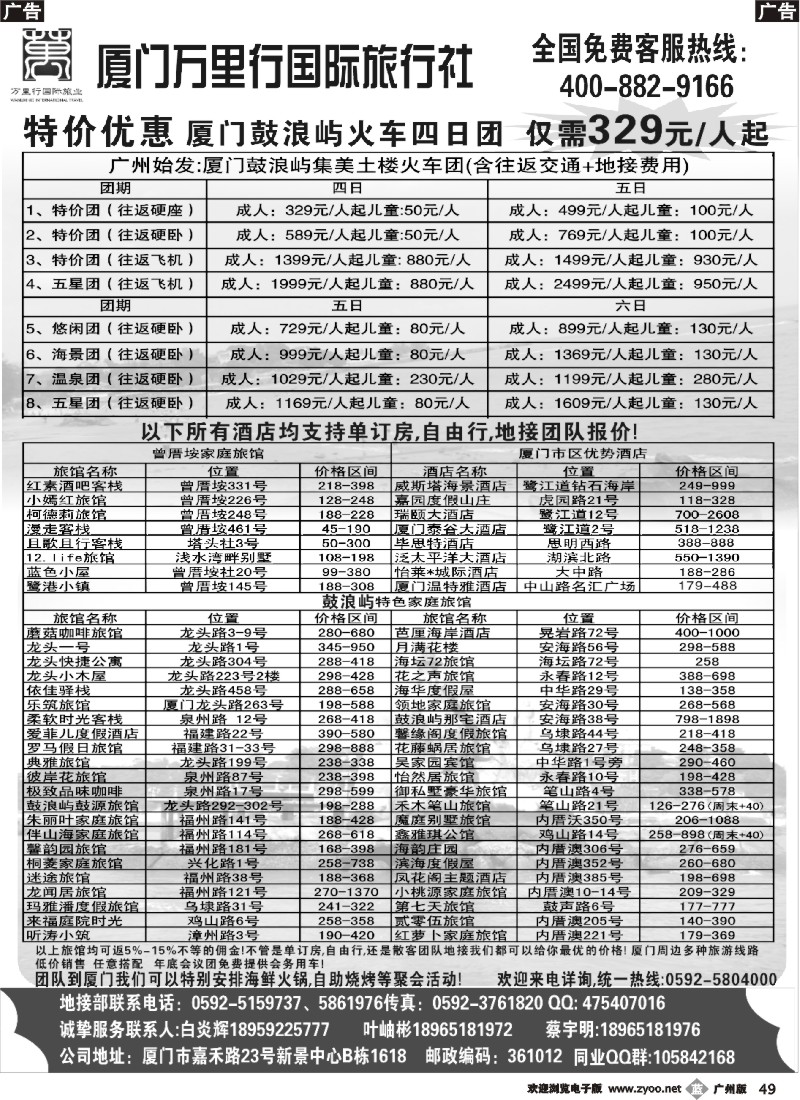 广告
广告
万里行国际旅业
厦门万里行国际旅行社
全国免费客服热线:
400-882-9166
特价优惠 厦门鼓浪屿火车四日团 仅需329元/人起
广州始发:厦门鼓浪屿集美土楼火车团(含往返交通+地接费用)
团期 四日 五日
1、特价团（往返硬座） 成人：329元/人起儿童:50元/人 成人：499元/人起儿童：100元/人
2、特价团（往返硬卧） 成人：589元/人起儿童:50元/人 成人：769元/人起儿童：100元/人
3、特价团（往返飞机） 成人：1399元/人起儿童: 880元/人 成人：1499元/人起儿童：930元/人
4、五星团（往返飞机） 成人：1999元/人起儿童：880元/人 成人：2499元/人起儿童：950元/人
团期 五日 六日
5、悠闲团（往返硬卧） 成人：729元/人起儿童：80元/人 成人：899元/人起儿童：130元/人
6、海景团（往返硬卧） 成人：999元/人起儿童：80元/人 成人：1369元/人起儿童：130元/人
7、温泉团（往返硬卧） 成人：1029元/人起儿童：230元/人 成人：1199元/人起儿童：280元/人
8、五星团（往返硬卧） 成人：1169元/人起儿童：80元/人 成人：1609元/人起儿童：130元/人
以下所有酒店均支持单订房,自由行,地接团队报价!
曾厝垵家庭旅馆 厦门市区优势酒店
旅馆名称 位置 价格区间 酒店名称 位置 价格区间
红素酒吧客栈 曾厝垵331号 218-398 威斯塔海景酒店 鹭江道钻石海岸 249-999
小嫣红旅馆 曾厝垵226号 128-248 嘉园度假山庄 虎园路21号 118-328
柯德莉旅馆 曾厝垵248号 188-228 瑞颐大酒店 鹭江道12号 700-2608
漫走客栈 曾厝垵461号 45-190 厦门泰谷大酒店 鹭江道2号 518-1238
且歌且行客栈 塔头社3号 50-300 毕思特酒店 思明西路 388-888
12.life旅馆 浅水湾畔别墅 108-198 泛太平洋大酒店 湖滨北路 550-1390
蓝色小屋 曾厝垵社20号 99-380 怡莱*城际酒店 大中路 188-286
鹭港小镇 曾厝垵145号 188-308 厦门温特雅酒店 中山路名汇广场 179-488
鼓浪屿特色家庭旅馆
旅馆名称 位置 价格区间 旅馆名称 位置 价格区间
蘑菇咖啡旅馆 龙头路3-9号 280-680 芭厘海岸酒店 晃岩路72号 400-1000
龙头一号 龙头路1号 345-950 月满花楼 安海路56号 298-588
龙头快捷公寓 龙头路304号 288-418 海坛72旅馆 海坛路72号 258
龙头小木屋 龙头路223号2楼 298-428 花之声旅馆 永春路12号 388-698
依佳驿栈 龙头路458号 288-658 海华度假屋 中华路29号 138-358
乐筑旅馆 厦门龙头路263号 198-588 领地家庭旅馆 安海路30号 268-568
柔软时光客栈 泉州路 12号 268-418 鼓浪屿那宅酒店 安海路38号 798-1898
爱菲儿度假酒店 福建路22号 390-580 馨缘阁度假旅馆 乌埭路44号 218-418
罗马假日旅馆 福建路31-33号 298-888 花藤蜗居旅馆 乌埭路27号 248-358
典雅旅馆 龙头路199号 238-338 吴家园宾馆 中华路1号旁 290-460
彼岸花旅馆 泉州路87号 238-398 怡然居旅馆 永春路10号 198-428
极致品味咖啡 泉州路17号 298-599 御私墅豪华旅馆 笔山路4号 338-578
鼓浪屿鼓源旅馆 龙头路292-302号 198-288 禾木笔山旅馆 笔山路21号 126-276(周末+40)
朱丽叶家庭旅馆 福州路141号 188-428 魔庭别墅旅馆 内厝沃350号 206-1088
伴山海家庭旅馆 福州路114号 268-618 鑫雅琪公馆 鸡山路14号 258-898(周末+40)
馨韵园旅馆 福州路181号 168-398 海韵庄园 内厝澳306号 276-659
桐菱家庭旅馆 兴化路1号 258-738 滨海度假屋 内厝澳352号 260-680
迷途旅馆 福州路38号 188-368 凤花阁主题酒店 内厝澳385号 198-698
龙闻居旅馆 福州路121号 270-1370 小桃源家庭旅馆 内厝澳10-14号 209-329
玛雅潘度假旅馆 乌埭路31号 241-322 第七天旅馆 鼓声路6号 177-777
来福庭院时光 鸡山路6号 258-358 贰零伍旅馆 内厝澳205号 140-390
听涛小筑 漳州路3号 190-420 红萝卜家庭旅馆 内厝澳221号 179-369
以上旅馆均可返5%-15%不等的佣金!不管是单订房,自由行,还是散客团队地接我们都可以给你最优的价格! 厦门周边多种旅游线路
低价销售 任意搭配 年底会议团免费提供会务用车!
团队到厦门我们可以特别安排海鲜火锅,自助烧烤等聚会活动! 欢迎来电详询,统一热线:0592-5804000
地接部联系电话：0592-5159737、5861976传真：0592-3761820 QQ: 475407016
诚挚服务联系人:白炎辉18959225777 叶岫彬18965181972 蔡宇明:18965181976
公司地址：厦门市嘉禾路23号新景中心B栋1618 邮政编码：361012 同业QQ群:105842168
欢迎浏览电子版 www.zyoo.net 蓝 广州版 49